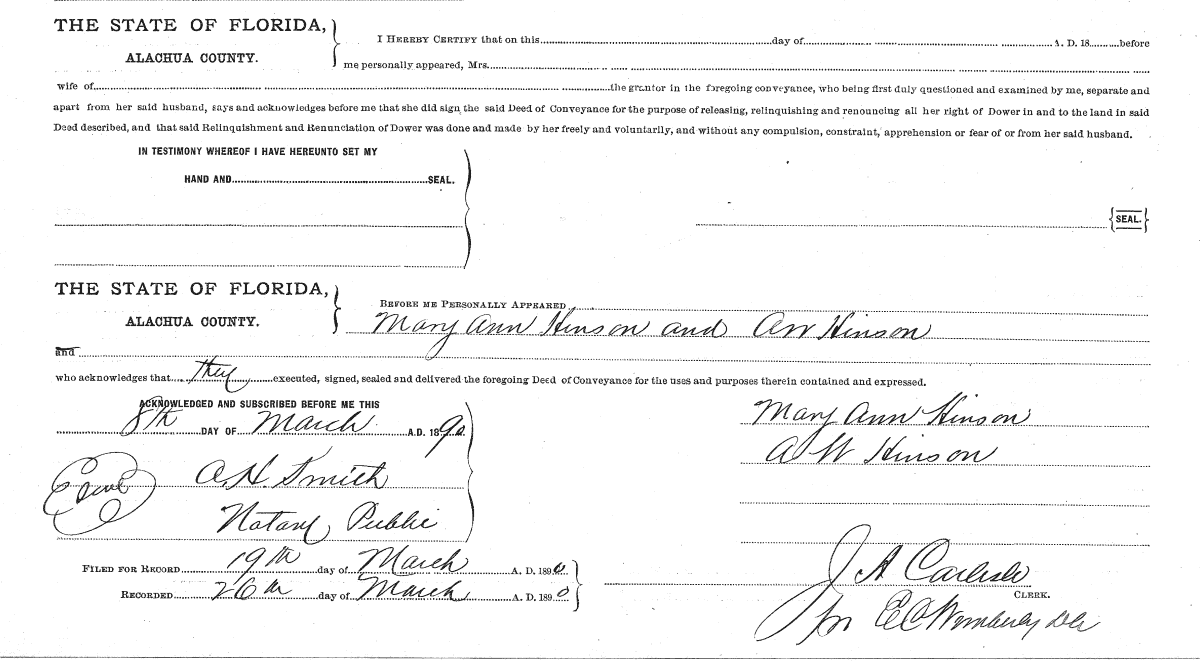 THE STATE OF FLORIDA,
ALACHUA COUNTY.
I HEREBY CERTIFY that on this day of A. D. 18 before
me personally appeared, Mrs.
wife of the grantor in the foregoing conveyance, who being first duly questioned and examined by me, separate and
apart from her said husband, says and acknowledges before me that she did sign the said Deed of Conveyance for the purpose of releasing, relinquishing and renouncing all her right of Dower in and to the land in said
Deed described, and that said Relinquishment and Renunciation of Dower was done and made by her freely and voluntarily, and without any compulsion, constraint, apprehension or fear of or from her said husband.
IN TESTIMONY WHEREOF I HAVE HEREUNTO SET MY
HAND AND SEAL.
SEAL.
THE STATE OF FLORIDA,
ALACHUA COUNTY.
BEFORE ME PERSONALLY APPEARED
Mary Ann Hinson and AW Hinson
and
who acknowledges that they executed, signed, sealed and delivered the foregoing Deed of Conveyance for the uses and purposes therein contained and expressed.
ACKNOWLEDGED AND SUBSCRIBED BEFORE ME THIS
8th DAY OF March A.D. 1890
Mary Ann Hinson
A W Hinson
Seal
A. H. Smith
Notary Public
FILED FOR RECORD 19th day of March A. D. 1890
RECORDED 26th day of March A. D. 1890
J A Carlisle
CLERK.
pr E C Wimberly DC